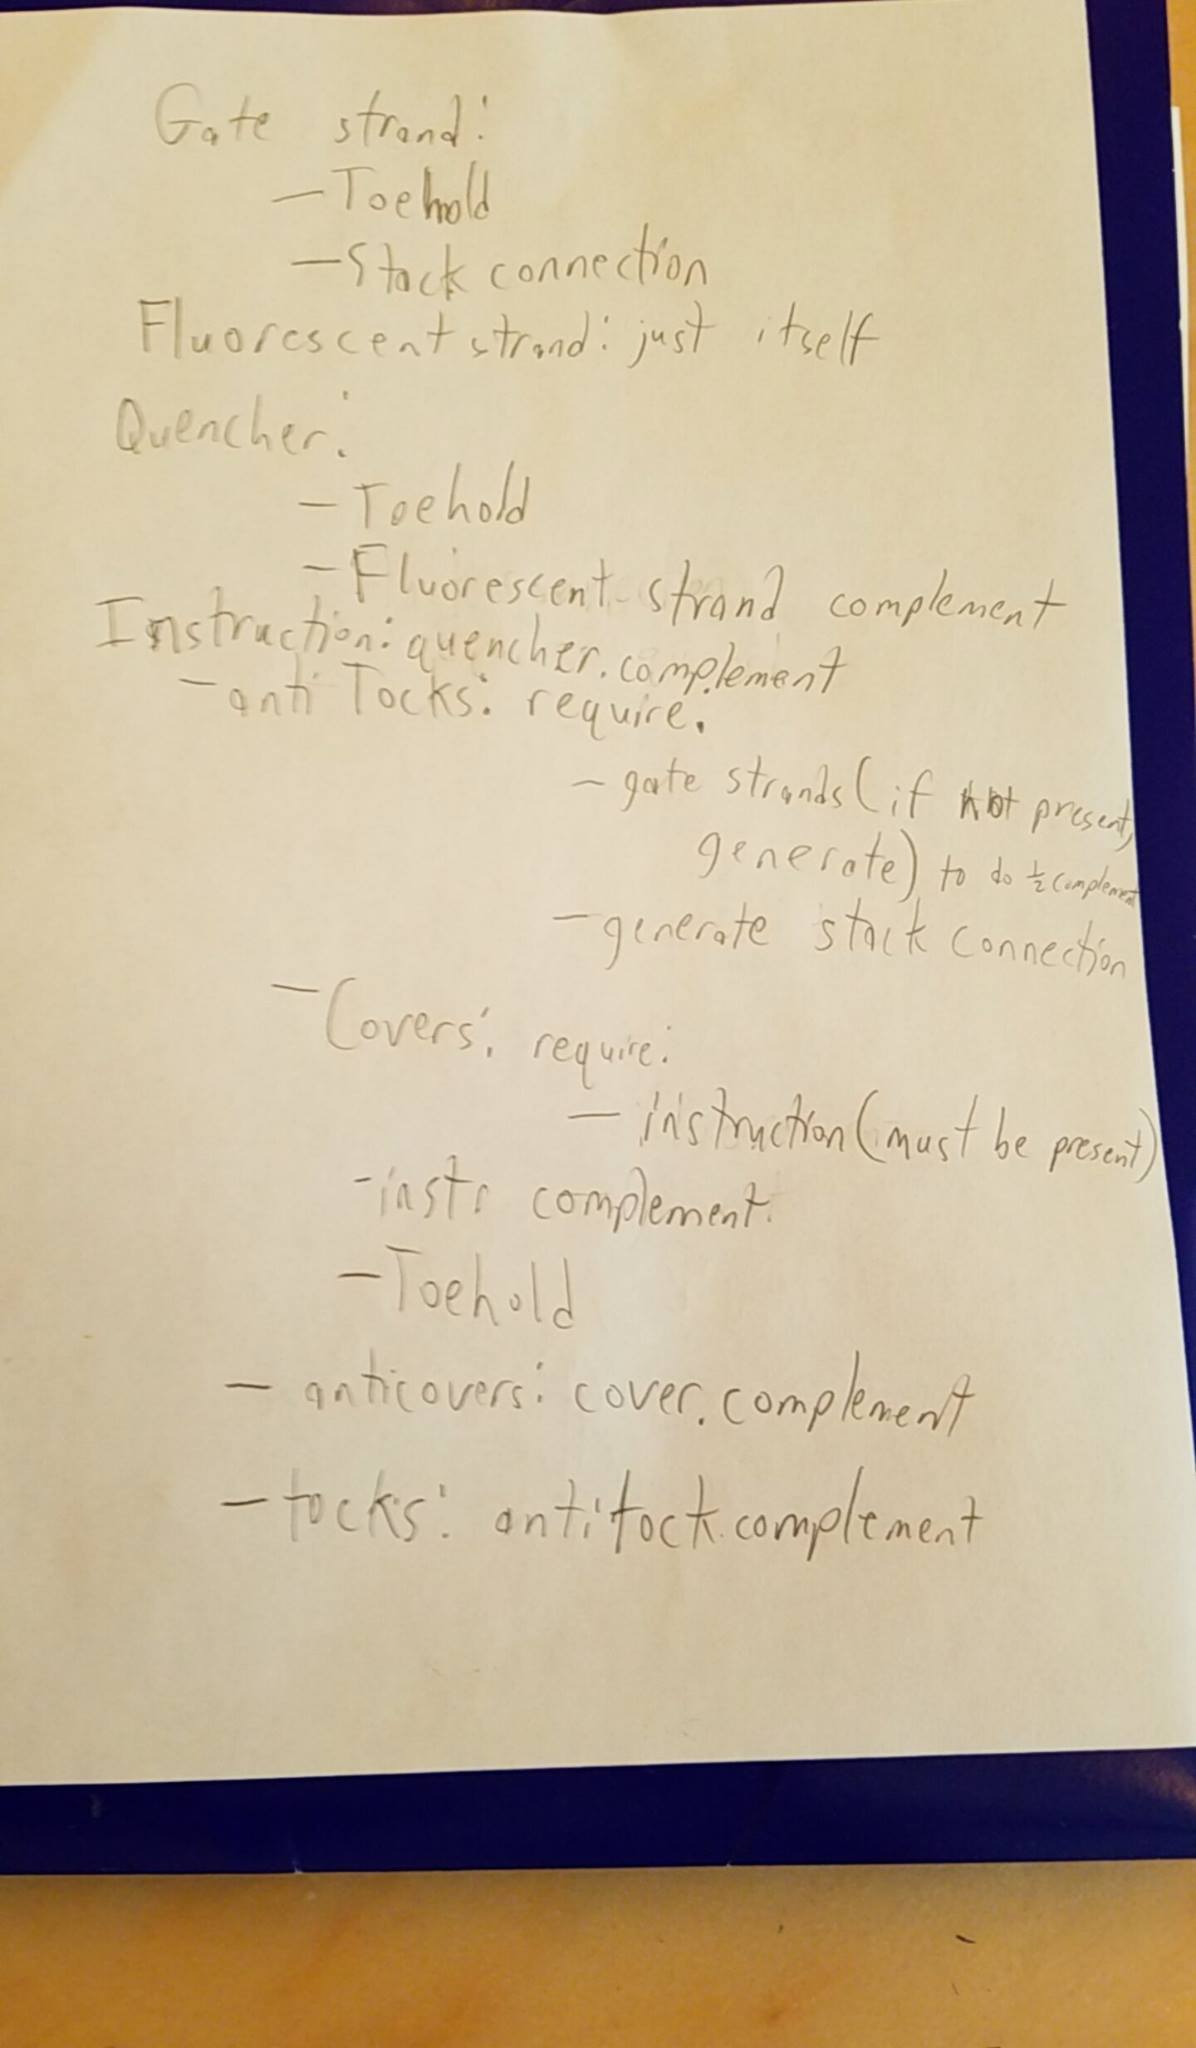 Gate strand:
- Toehold
- Stack connection
Fluorescent strand: just itself
Quencher:
- Toehold
- Fluorescent strand complement
Instruction: quencher.complement
- anti Tocks: require:
- gate strands (if not present,
generate) to do ½ complement
- generate stack connection
- Covers: require:
- instruction (must be present)
- instr complement
- Toehold
- anticovers: cover.complement
- tocks: antitock.complement